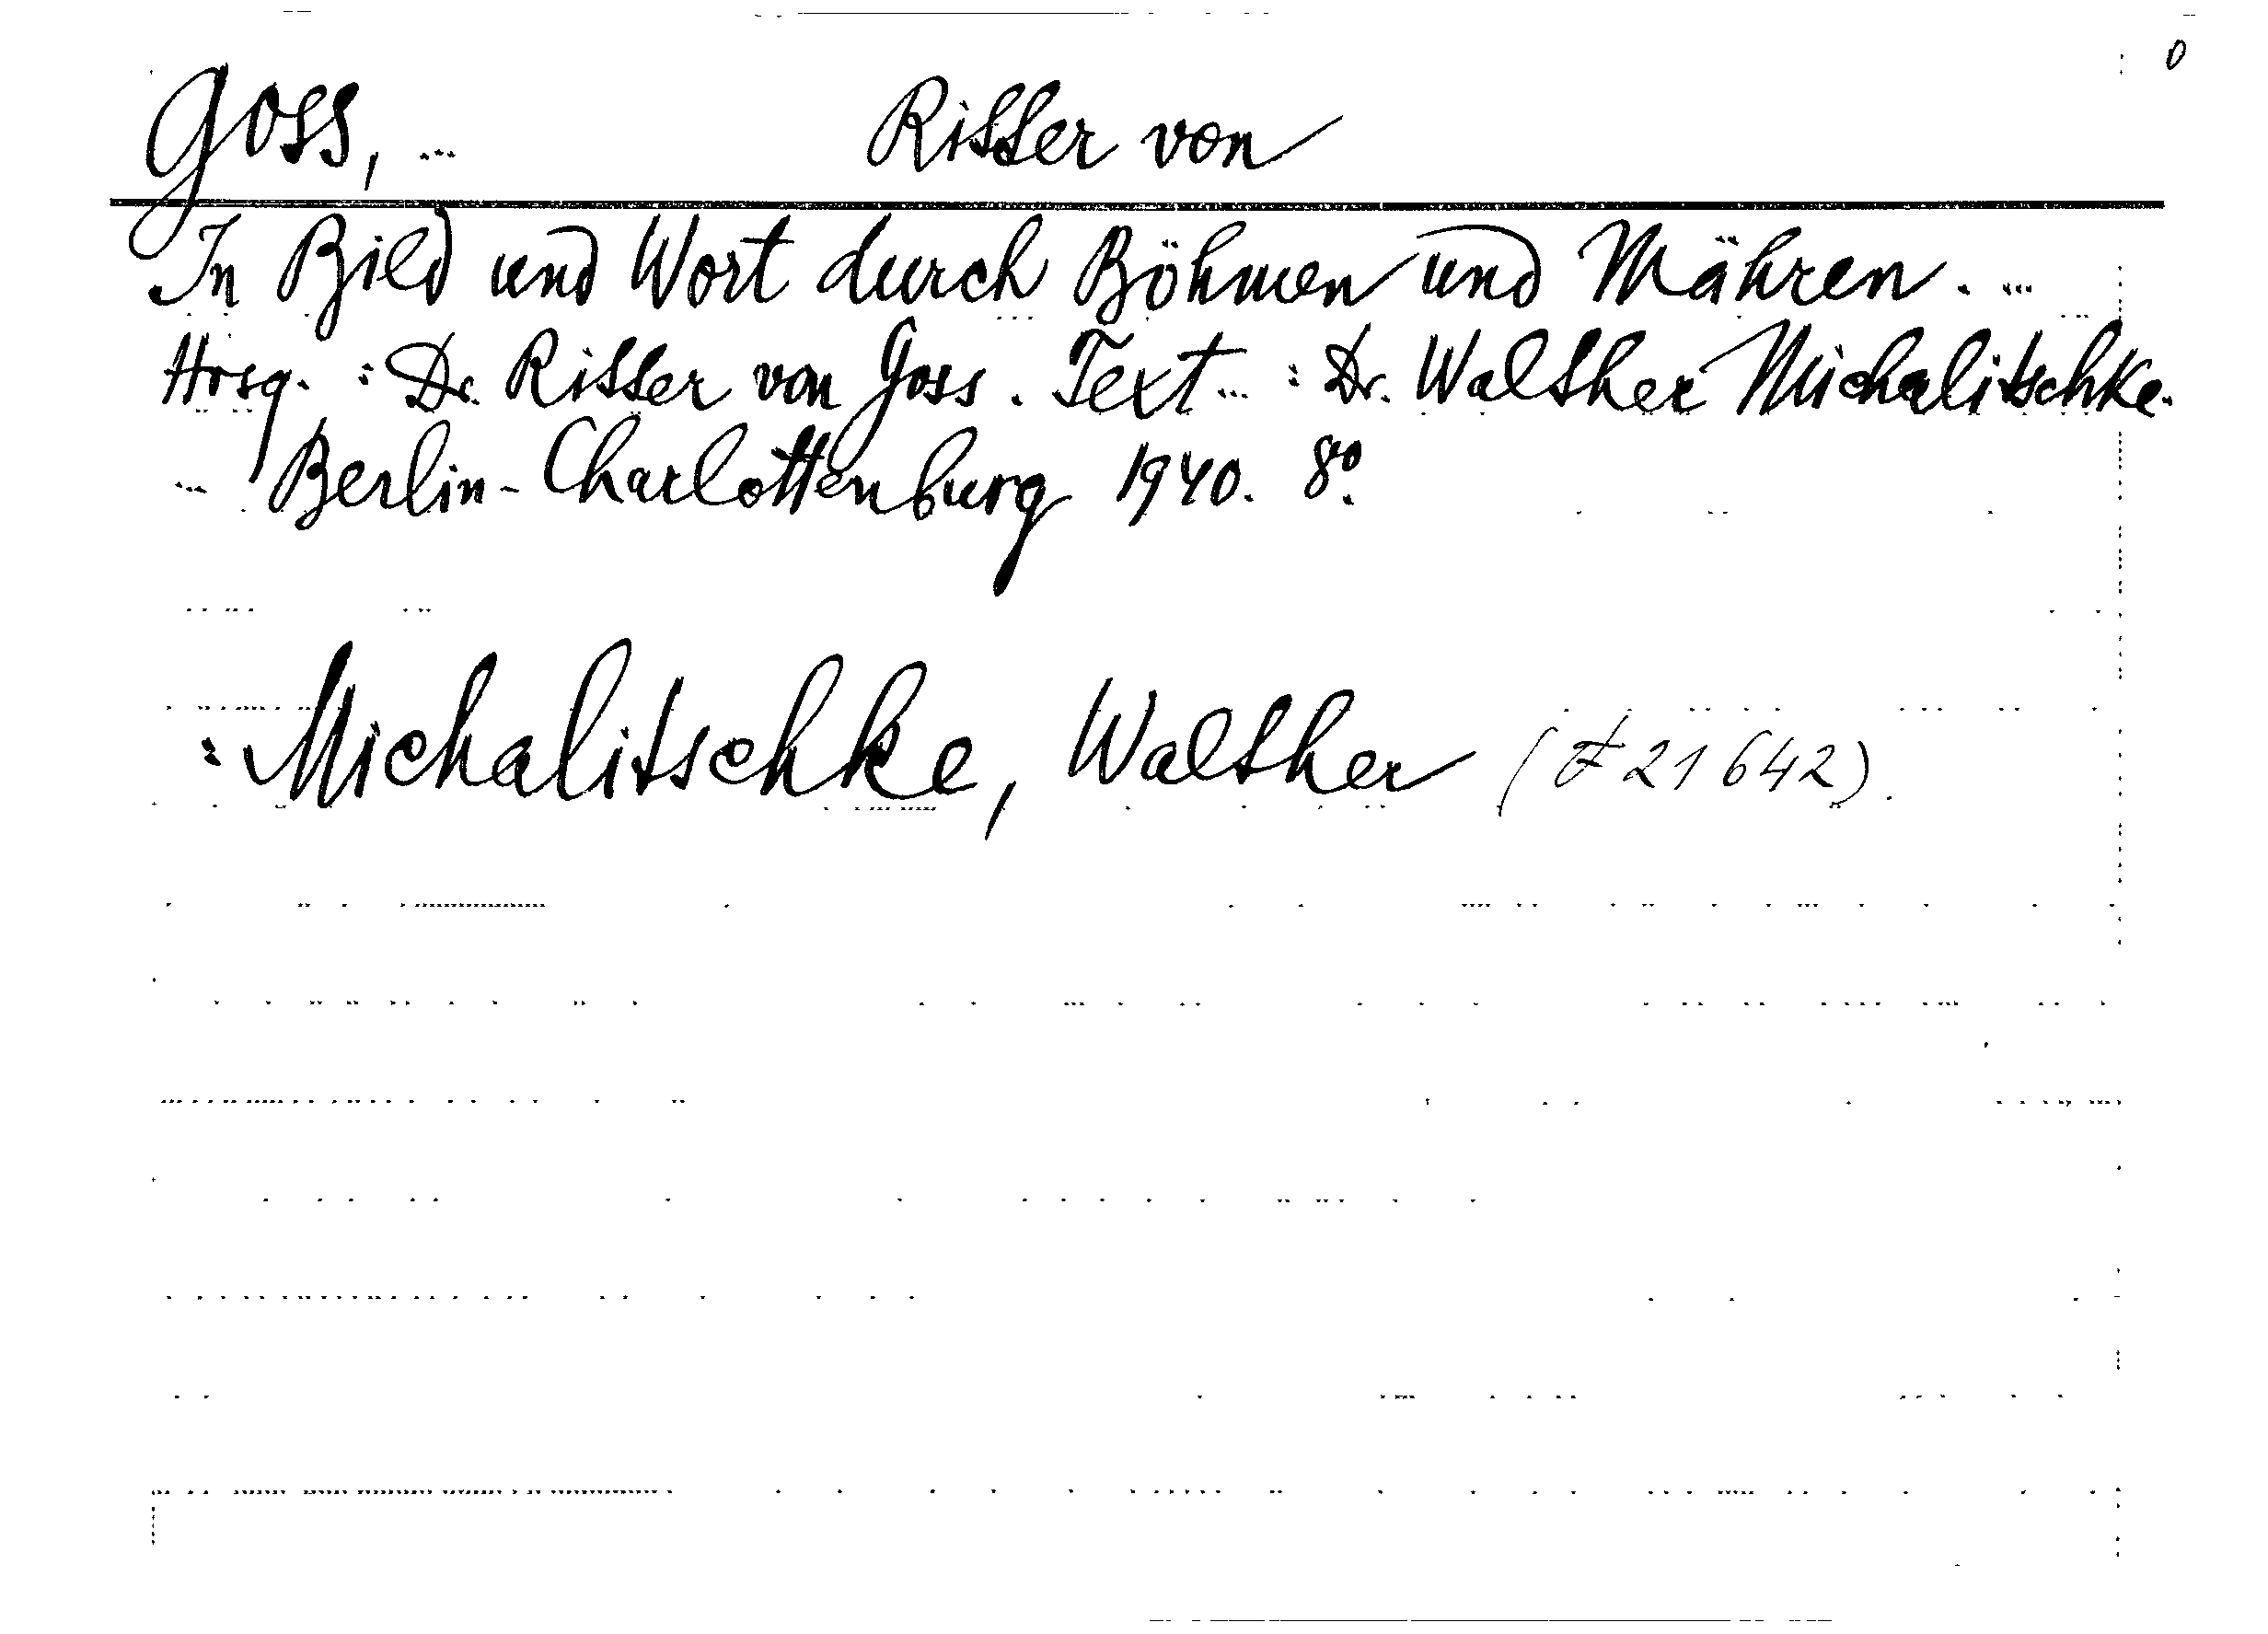 0
Goss, ... Ritter von
In Bild und Wort durch Böhmen und Mähren. ...
Hrsg. : Dr. Ritter von Goss. Text ... : Dr. Walther Michalitschke.
... Berlin-Charlottenburg 1940. 8°.
: Michalitschke, Walther ( 21 642).